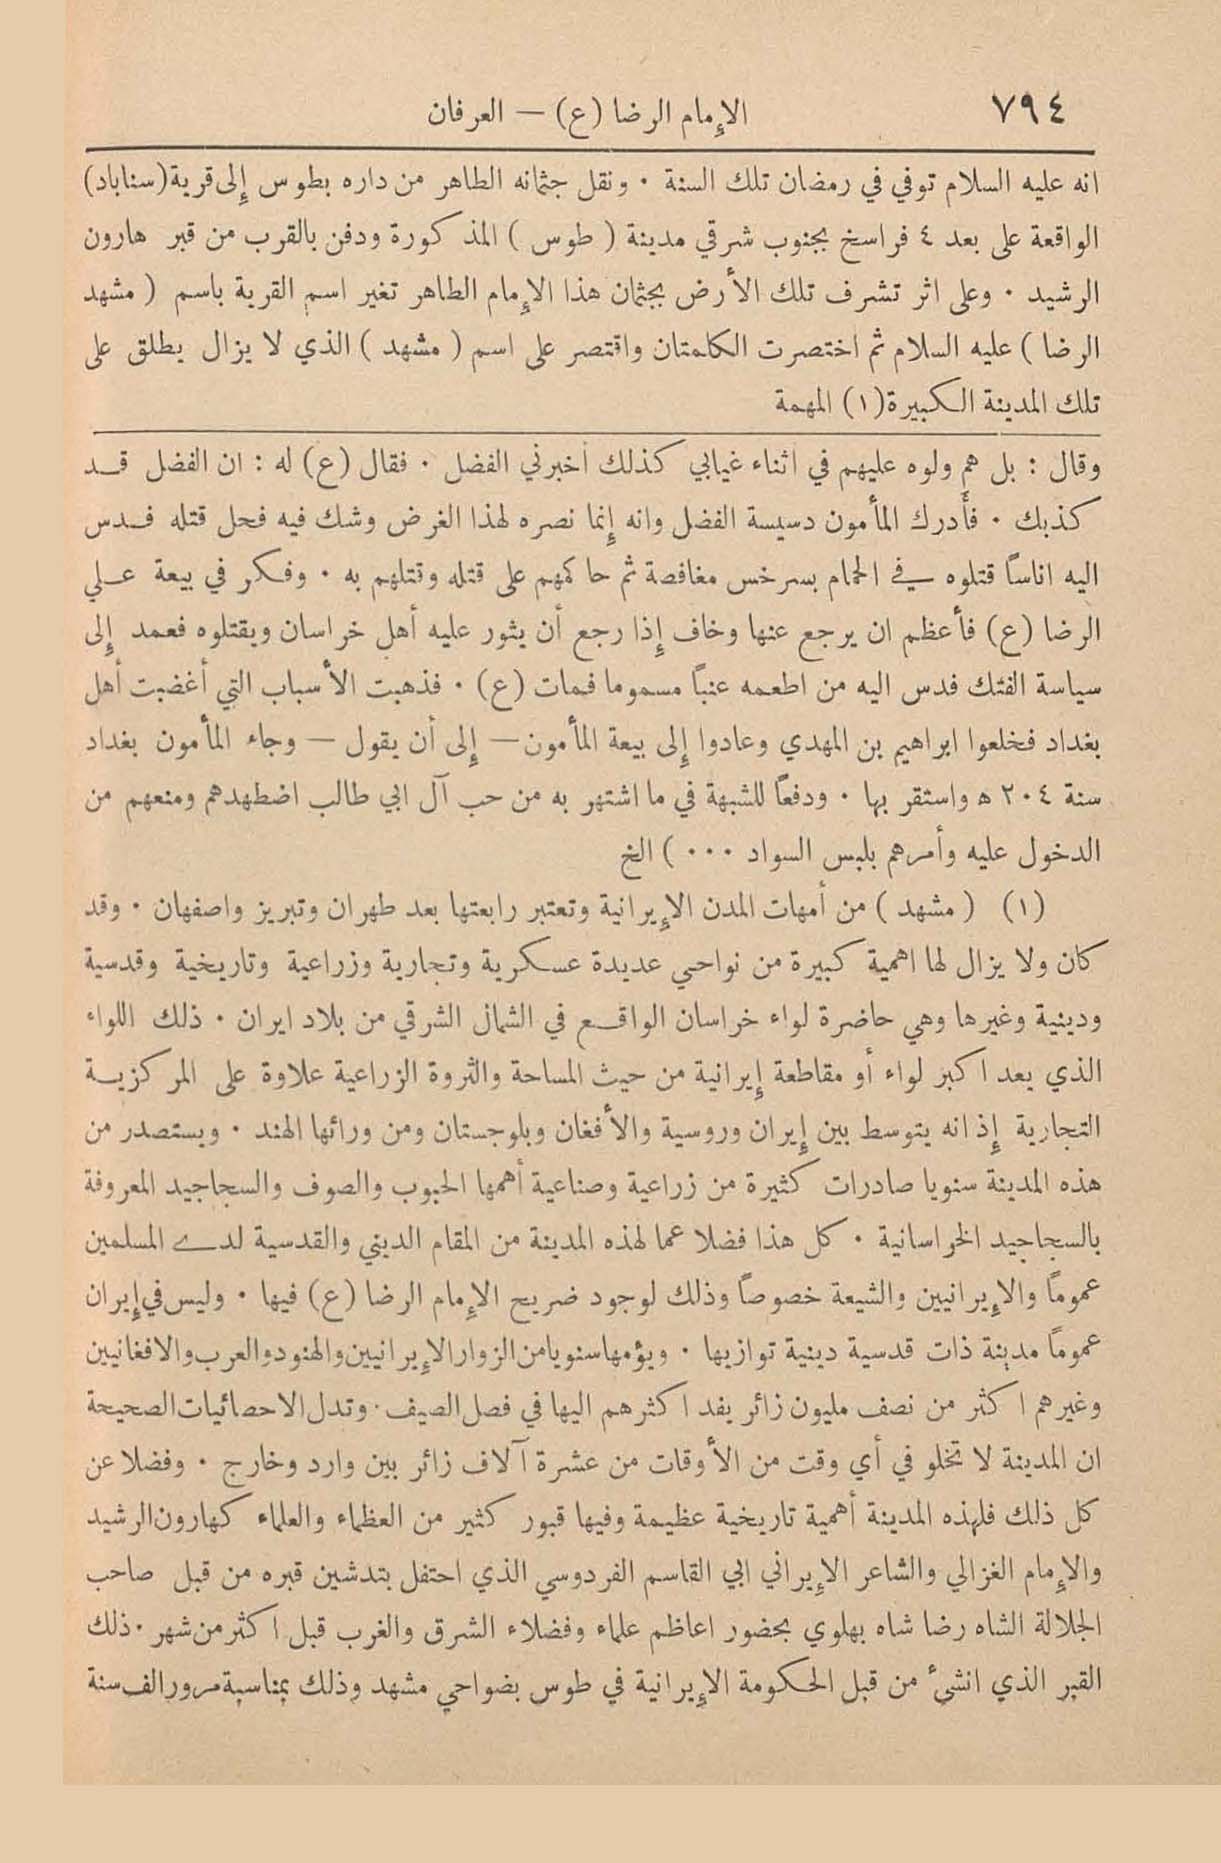 ٧٩٤
الإمام الرضا (ع) — العرفان
انه عليه السلام توفي في رمضان تلك السنة . ونقل جثمانه الطاهر من داره بطوس إلى قرية (سناباد)
الواقعة على بعد ٤ فراسخ بجنوب شرقي مدينة ( طوس ) المذكورة ودفن بالقرب من قبر هارون
الرشيد . وعلى اثر تشرف تلك الأرض بجثمان هذا الإمام الطاهر تغير اسم القرية باسم ( مشهد
الرضا ) عليه السلام ثم اختصرت الكلمتان واقتصر على اسم ( مشهد ) الذي لا يزال يطلق على
تلك المدينة الكبيرة (١) المهمة
وقال : بل هم ولوه عليهم في اثناء غيابي كذلك أخبرني الفضل . فقال (ع) له : ان الفضل قد
كذبك . فأدرك المأمون دسيسة الفضل وانه إنما نصره لهذا الغرض وشك فيه فحل قتله فدس
اليه اناساً قتلوه في الحمام بسرخس مغافصة ثم حاكمهم على قتله وقتلهم به . وفكر في بيعة علي
الرضا (ع) فأعظم ان يرجع عنها وخاف إذا رجع أن يثور عليه أهل خراسان ويقتلوه فعمد إلى
سياسة الفتك فدس اليه من اطعمه عنباً مسموما فمات (ع) . فذهبت الأسباب التي أغضبت أهل
بغداد فخلعوا ابراهيم بن المهدي وعادوا إلى بيعة المأمون — إلى أن يقول — وجاء المأمون بغداد
سنة ٢٠٤ ه واستقر بها . ودفعاً للشبهة في ما اشتهر به من حب آل ابي طالب اضطهدهم ومنعهم من
الدخول عليه وأمرهم بلبس السواد ... ) الخ
(١) ( مشهد ) من أمهات المدن الإيرانية وتعتبر رابعتها بعد طهران وتبريز واصفهان . وقد
كان ولا يزال لها اهمية كبيرة من نواحي عديدة عسكرية وتجارية وزراعية وتاريخية وقدسية
ودينية وغيرها وهي حاضرة لواء خراسان الواقع في الشمال الشرقي من بلاد ايران . ذلك اللواء
الذي يعد اكبر لواء أو مقاطعة إيرانية من حيث المساحة والثروة الزراعية علاوة على المركزية
التجارية إذ انه يتوسط بين إيران وروسية والأفغان وبلوجستان ومن ورائها الهند . ويستصدر من
هذه المدينة سنويا صادرات كثيرة من زراعية وصناعية أهمها الحبوب والصوف والسجاجيد المعروفة
بالسجاجيد الخراسانية . كل هذا فضلا عما لهذه المدينة من المقام الديني والقدسية لدى المسلمين
عموماً والإيرانيين والشيعة خصوصاً وذلك لوجود ضريح الإمام الرضا (ع) فيها . وليس في إيران
عموماً مدينة ذات قدسية دينية توازيها . ويؤمها سنويا من الزوار الإيرانيين والهنود والعرب والافغانيين
وغيرهم اكثر من نصف مليون زائر يفد اكثرهم اليها في فصل الصيف . وتدل الاحصائيات الصحيحة
ان المدينة لا تخلو في أي وقت من الأوقات من عشرة آلاف زائر بين وارد وخارج . وفضلا عن
كل ذلك فلهذه المدينة أهمية تاريخية عظيمة وفيها قبور كثير من العظماء والعلماء كهارون الرشيد
والإمام الغزالي والشاعر الإيراني ابي القاسم الفردوسي الذي احتفل بتدشين قبره من قبل صاحب
الجلالة الشاه رضا شاه بهلوي بحضور اعاظم علماء وفضلاء الشرق والغرب قبل اكثر من شهر . ذلك
القبر الذي انشئ من قبل الحكومة الإيرانية في طوس بضواحي مشهد وذلك بمناسبة مرور الف سنة